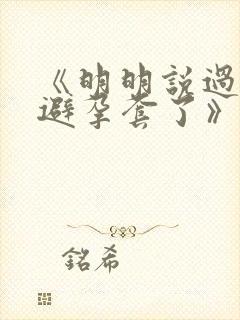 《明明說過
避孕套了》
銘希